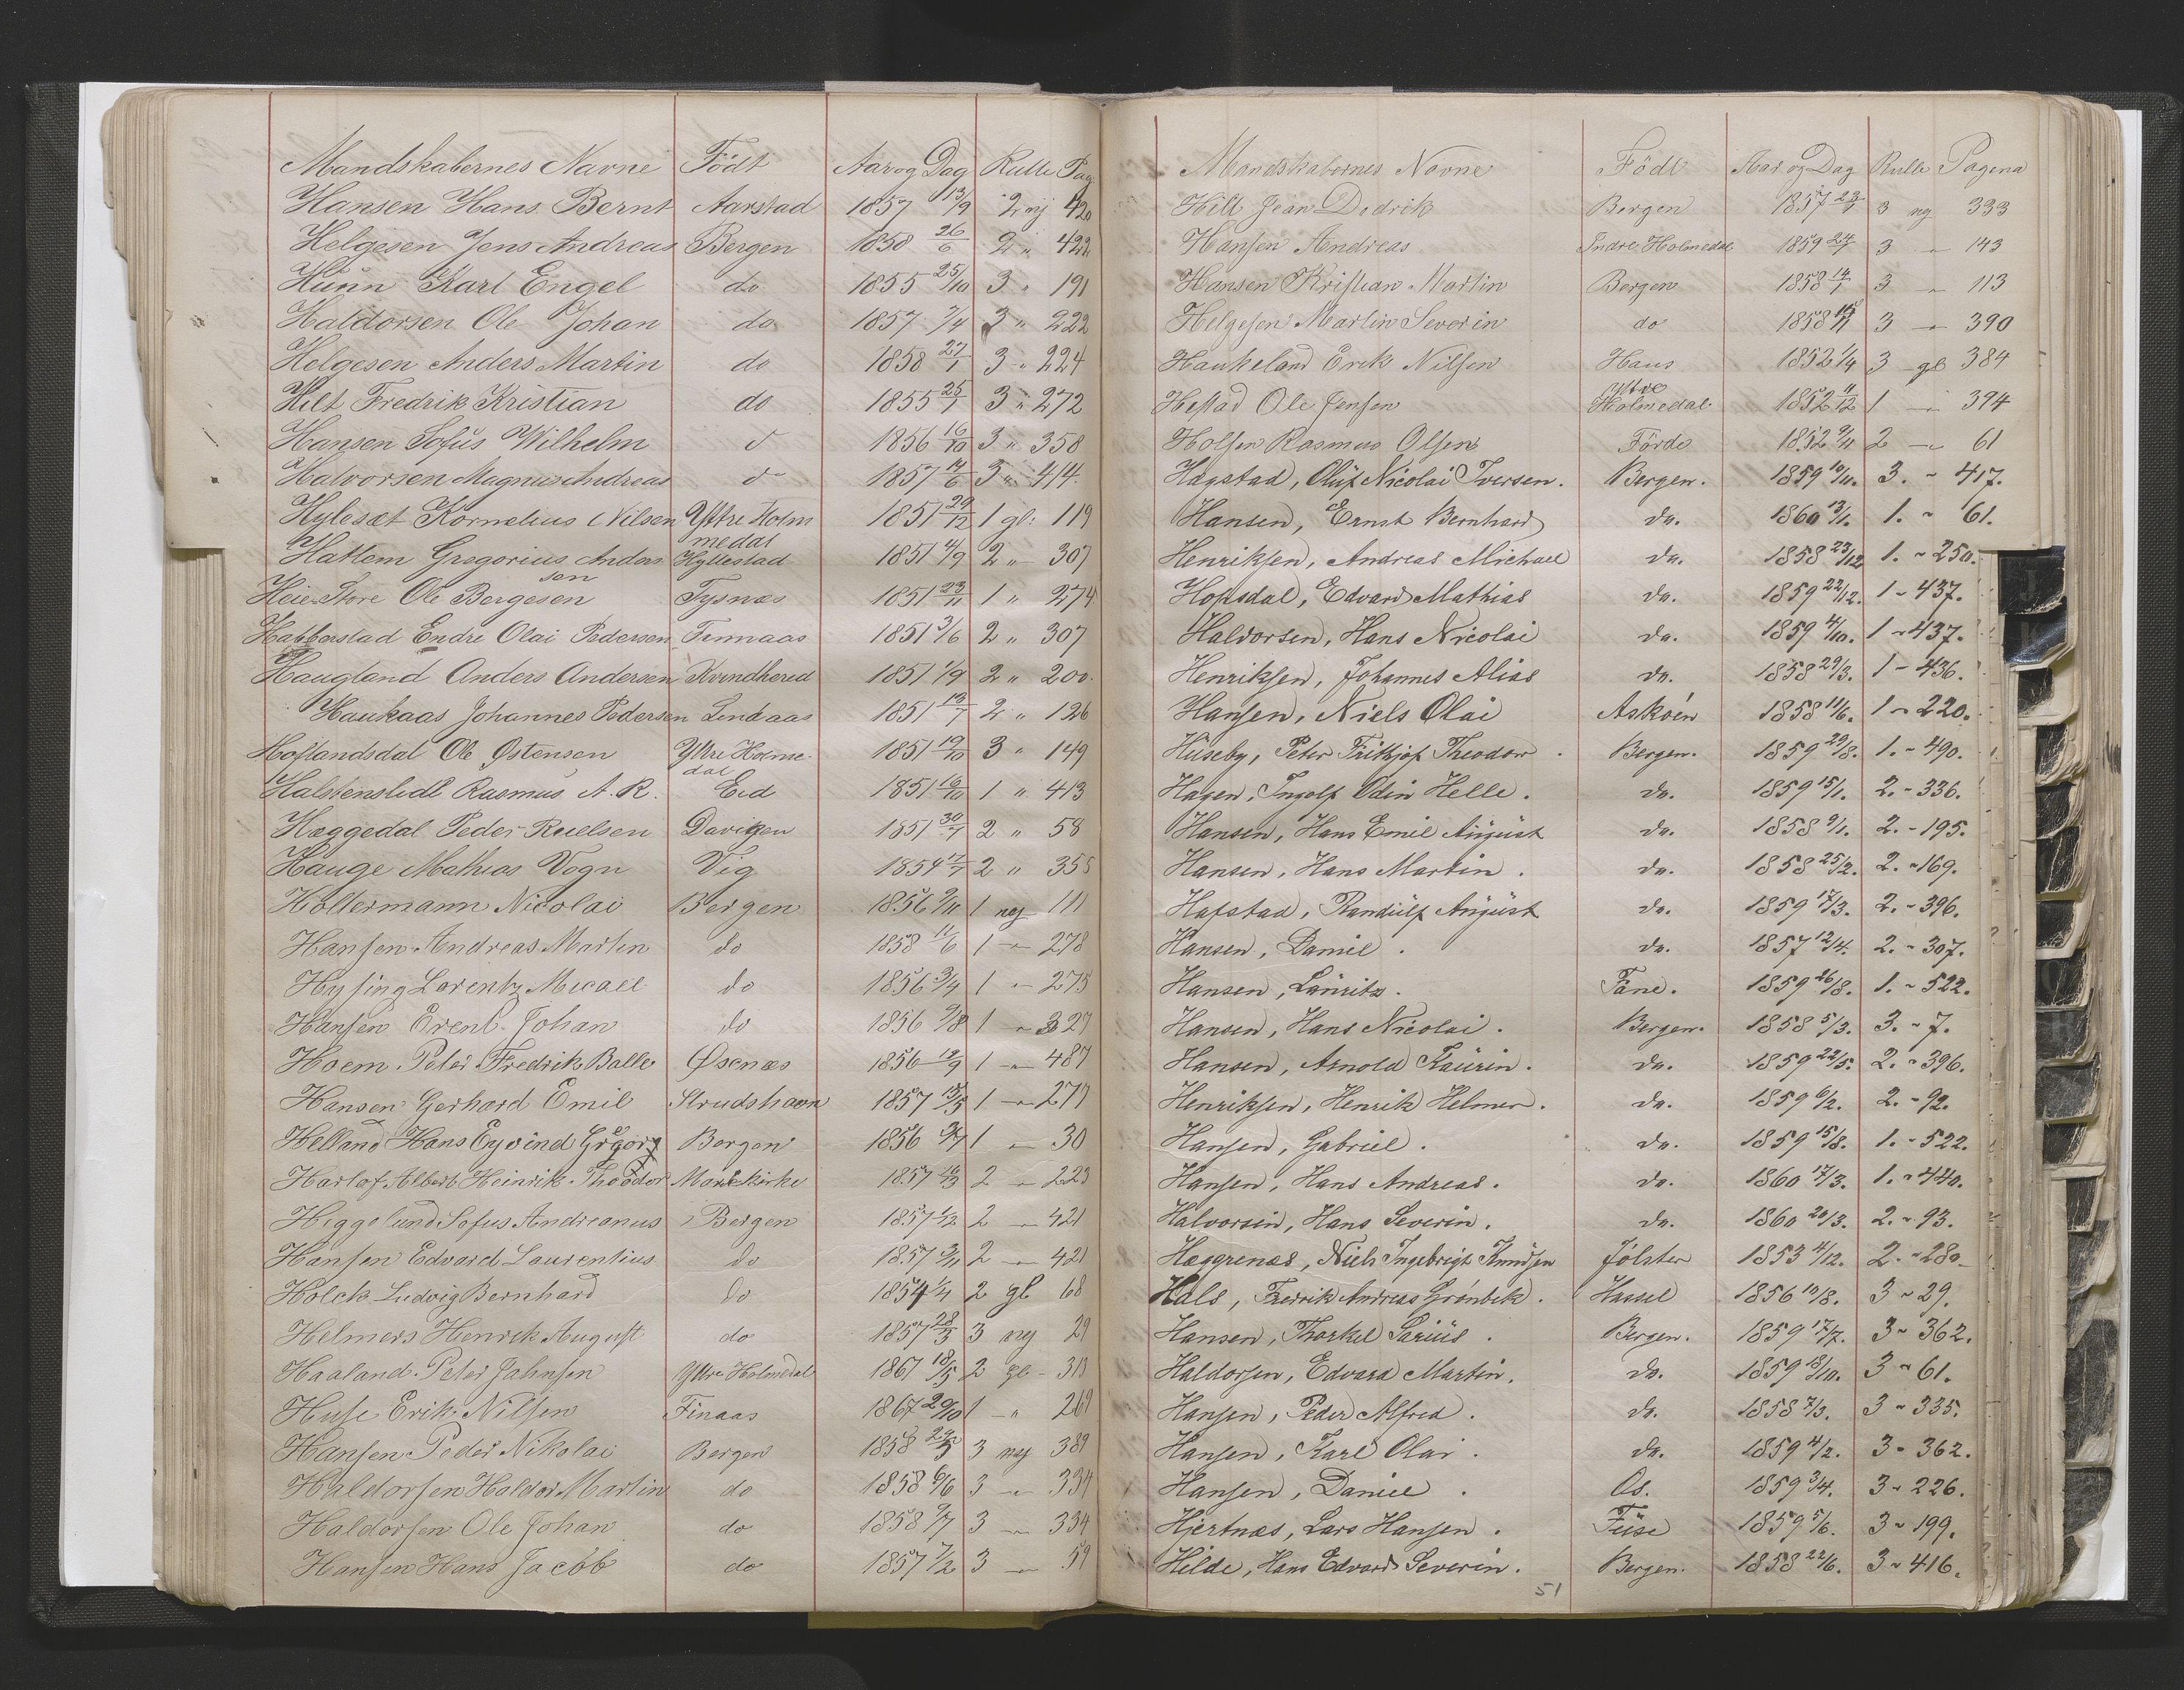 Mandskabernes Navne Födt Aar og Dag Rulle Pag
Hansen Hans Bernt Aarstad 1857 13/9 2 ny 420
Helgesen Jens Andreas Bergen 1858 26/6 2 " 422
Hünn Karl Engel do 1855 25/10 3 " 191
Haldorsen Ole Johan do 1857 7/4 3 " 222
Helgesen Anders Martin do 1858 27/1 3 " 224
Hilt Fredrik Kristian do 1855 25/7 3 " 272
Hansen Sofüs Wilhelm d 1856 16/10 3 " 358
Halvorsen Magnus Andreas d 1857 14/6 3 " 414
Hylesæt Kornelius Nilsen Yttre Holm 1851 29/12 1 gl: 119
medal
Hattem Gregorius Anders Hyllestad 1851 4/9 2 " 307
sen
Heie Store Ole Bergesen Tysnæs 1851 23/11 1 " 274
Habberstad Endre Olai Pedersen Finnaas 1851 3/6 2 " 307
Haugland Anders Andersen Kvindhered 1851 1/9 2 " 200
Haukaas Johannes Pedersen Lindaas 1851 13/7 2 " 126
Hoflandsdal Ole Østensen Yttre Holme- 1851 19/10 3 " 149
dal
Halstenslidt Rasmus A. R. Eid 1851 16/10 1 " 413
Hæggedal Peder Ruelsen Daviken 1851 30/7 2 " 58
Hauge Mathias Vogn Vig 1854 2 " 355
Holtermann Nicolai Bergen 1856 9/11 1 ny 111
Hansen Andreas Martin do 1858 11/6 1 " 278
Hysing Lorentz Micael do 1856 3/4 1 " 275
Hansen Erent Johan do 1856 9/8 1 " 327
Hoem Peter Fredrik Balle Øsenæs 1856 19/9 1 " 487
Hansen Gerhard Emil Strudshavn 1857 15/5 1 " 277
Helland Hans Eyvind Gregorz Bergen 1856 1 " 30
Hartof Albert Heinrik Theodor Mariekirke 1857 16/3 2 " 223
Heggelund Sofus Andreanus i Bergen 1857 1/12 2 " 421
Hansen Edvard Laurentius do 1857 3/11 2 " 421
Holck Ludvig Bernhard do 1854 1/4 2 gl 68
Helmers Henrik August do 1857 28/3 3 ny 29
Haaland Peter Johnsen Yttre Holmedal 1867 18/5 2 gl - 313
Huse Erik Nilsen Finaas 1867 29/10 1 " 269
Hansen Peder Nikolai Bergen 1858 3 ny 389
Haldorsen Haldor Martin do 1858 6/6 3 " 334
Haldorsen Ole Johan do 1858 9/7 3 " 334
Hansen Hans Jacob do 1857 7/2 3 " 59
Mandskabernes Navne Födt Aar og Dag Rulle Pagina
Hilt Jean Didrik Bergen 1857 3 ny 333
Hansen Andreas Indre Holmedal 1859 24/7 3 " 143
Hansen Kristian Martin Bergen 1858 14/1 3 " 113
Helgesen Martin Severin do 1858 3 " 390
Haukeland Erik Nilsen Haus 1852 1/4 3 gl 384
Hestad Ole Jensen Ytre Holmedal 1852 11/12 1 " 394
Holsen Rasmus Olsen Förde 1852 9/11 2 " 61
Hagstad, Olüf Nicolai Iversen. Bergen. 1859 10/11. 3. " 417.
Hansen, Ernst Bernhard do. 1860 13/1. 1. " 61.
Henriksen, Andreas Michael do. 1858 23/12 1. " 250.
Hopsdal, Edvard Mathias do. 1859 22/12. 1 " 437.
Haldorsen, Hans Nicolai do. 1859 4/10. 1 " 437.
Henriksen, Johannes Alias do. 1858 29/3. 1 " 436.
Hansen, Niels Olai Askøen 1858 11/6. 1 " 220.
Hüseby, Peter Frithjof Theodor. Bergen. 1859 29/8. 1. " 490.
Hagen, Ingolf Odin Helle. do. 1859 15/1. 2. " 336.
Hansen, Hans Emil Aügüst do. 1858 9/1. 2. " 195.
Hansen, Hans Martin. do. 1858 25/2. 2. " 169.
Hafstad, Randülf Aügüst do. 1859 17/3. 2. " 396.
Hansen, Daniel. do. 1857 12/4. 2. " 307.
Hansen, Laüritz. Fane. 1859 26/8. 1. " 522.
Hansen, Hans Nicolai. Bergen. 1858 5/3. 3. " 7.
Hansen, Arnold Kaürin. do. 1859 22/5. 2. " 396.
Henriksen, Henrik Helmer. do. 1859 6/2. 2. " 92.
Hansen, Gabriel. do. 1859 15/8. 1. " 522.
Hansen, Hans Andreas. do. 1860 17/3. 1. " 440.
Halvorsen, Hans Severin. do. 1860 20/3. 2. " 93.
Hæggrenæs, Niels Ingebrigt Knudsen Jølster 1853 4/12. 2. " 280
Hals, Fredrik Andreas Grønbek. Hassel 1856 10/8. 3 " 29.
Hansen, Thorkel Sariüs. Bergen. 1859 17/7. 3 " 362.
Haldorsen, Edvard Martin. do. 1859 18/10. 3 " 61.
Hansen, Peder Alfred. do. 1858 7/3. 3 " 335.
Hansen, Karl Olai. do. 1859 4/2. 3 " 362.
Hansen, Daniel. Os. 1859 3/4. 3 " 226.
Hjertnæs, Lars Hansen. Füse 1859 5/6. 3 " 199.
Hilde, Hans Edvard Severin. Bergen. 1858 22/6. 3 " 416.
51